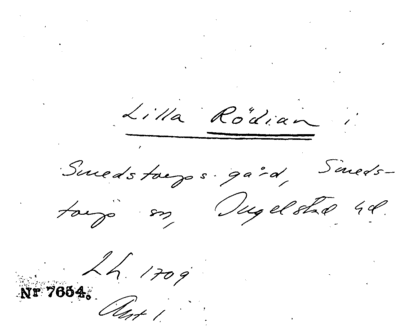 Lilla Rödian i
Smedstorps gård, Smeds-
torp sn, Ingelstad hd.
Lh. 1709
Nr 7654.
Akt 1.